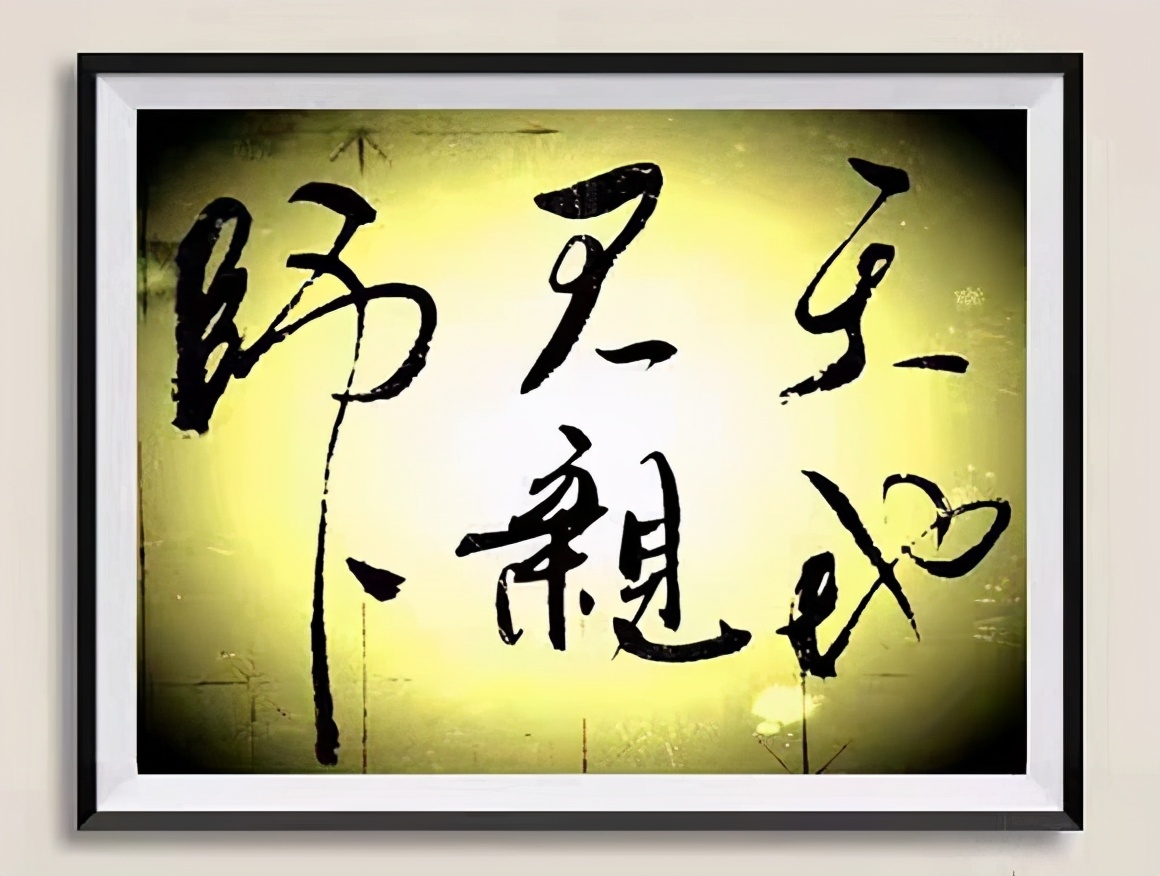 天地
君親
師